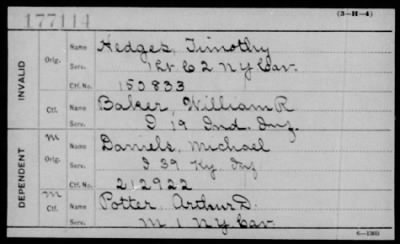 177114
(3-H-4)
INVALID
Orig.
Name Hedges, Timothy
Serv. 1 Lt C 2 N Y Cav.
Ctf. No. 153833
Ctf.
Name Baker, William R
I 19 Ind. Inf.
DEPENDENT
m
Orig.
Name Daniels, Michael
Serv. I 39 Ky. Inf
Ctf. No. 212922
m
Ctf.
Name Potter, Arthur D.
Serv. M 1 N Y Cav.